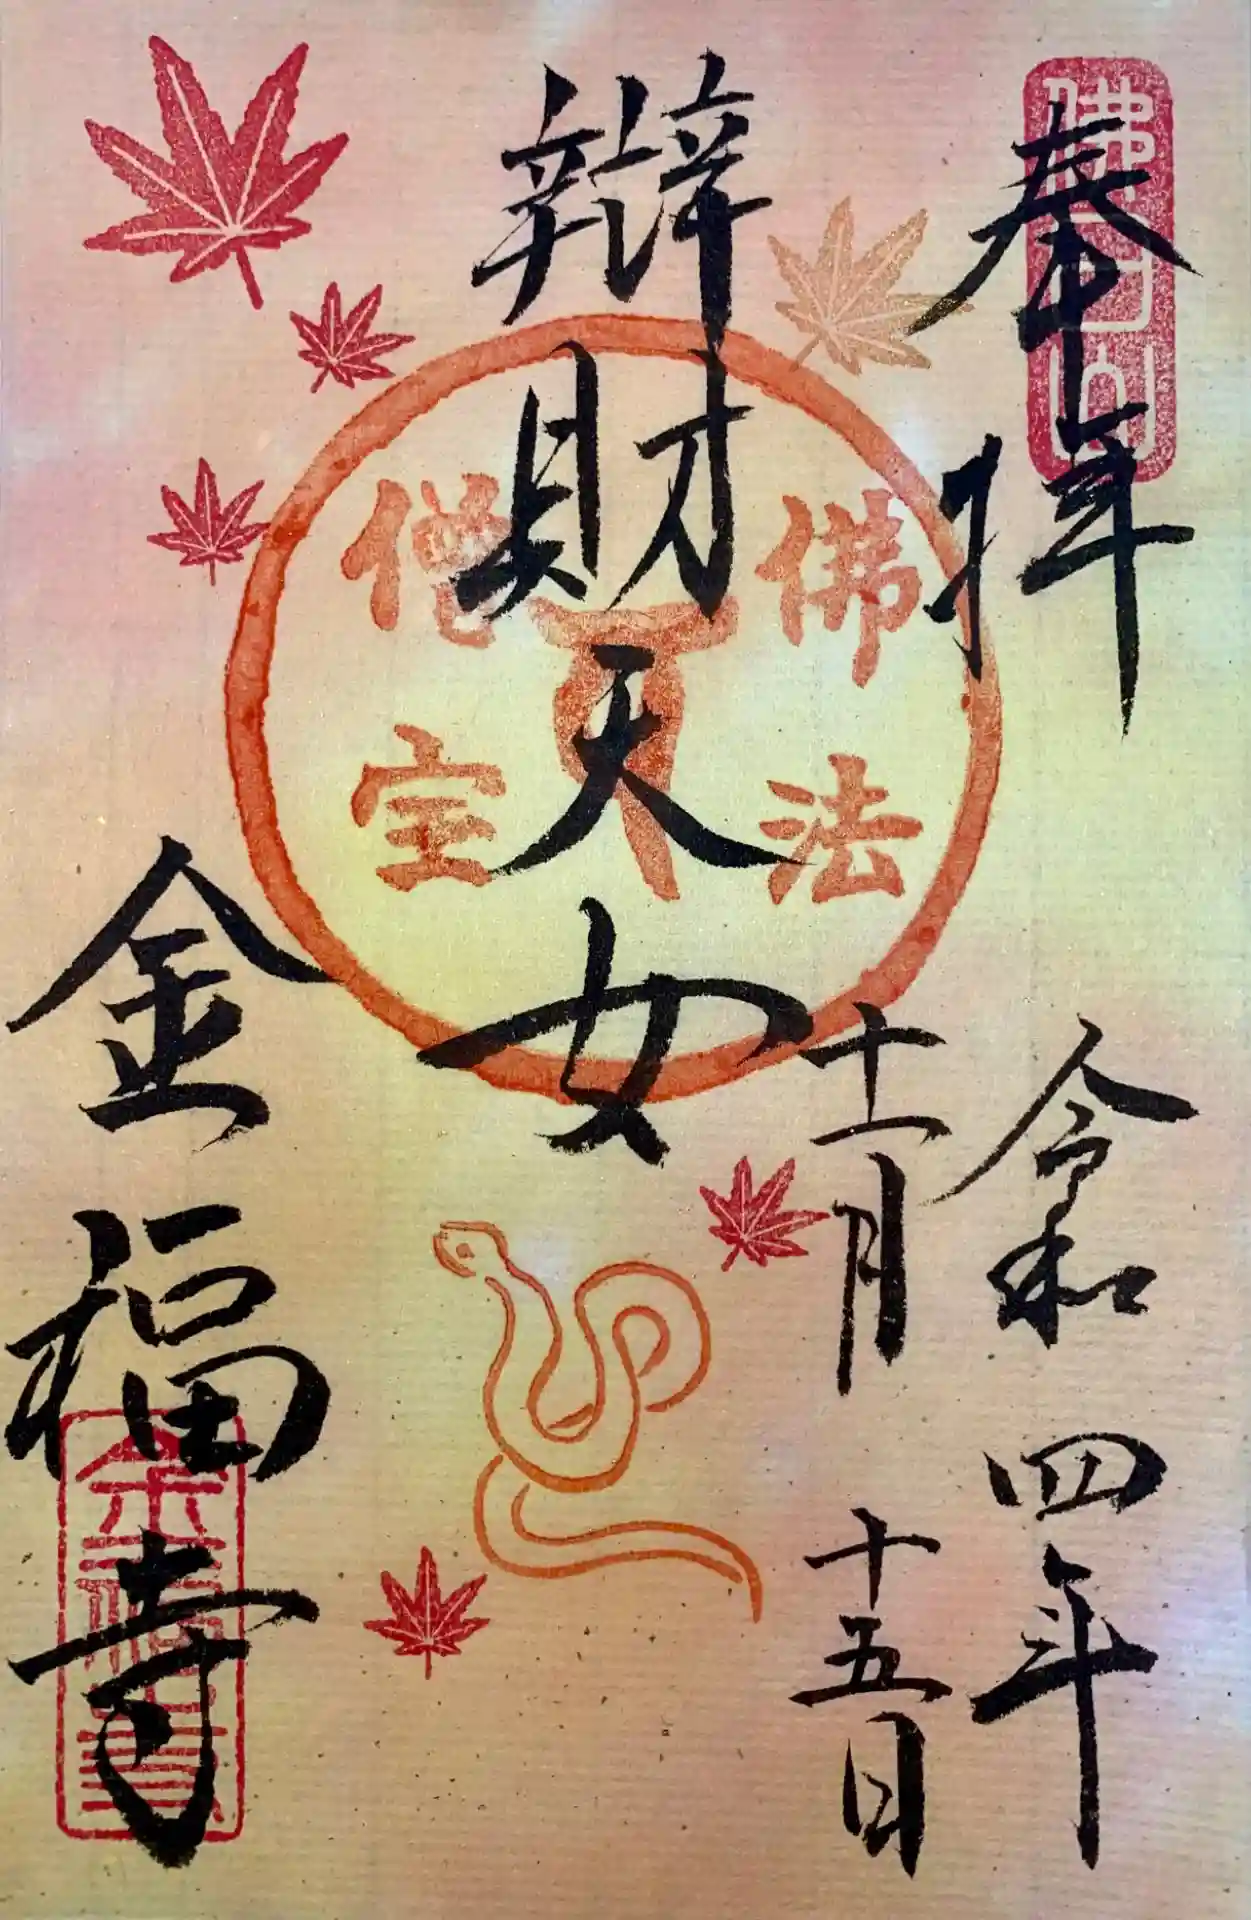 奉拝
令和四年
十一月
十五日
辯財天女
佛法
僧宝
金福寺